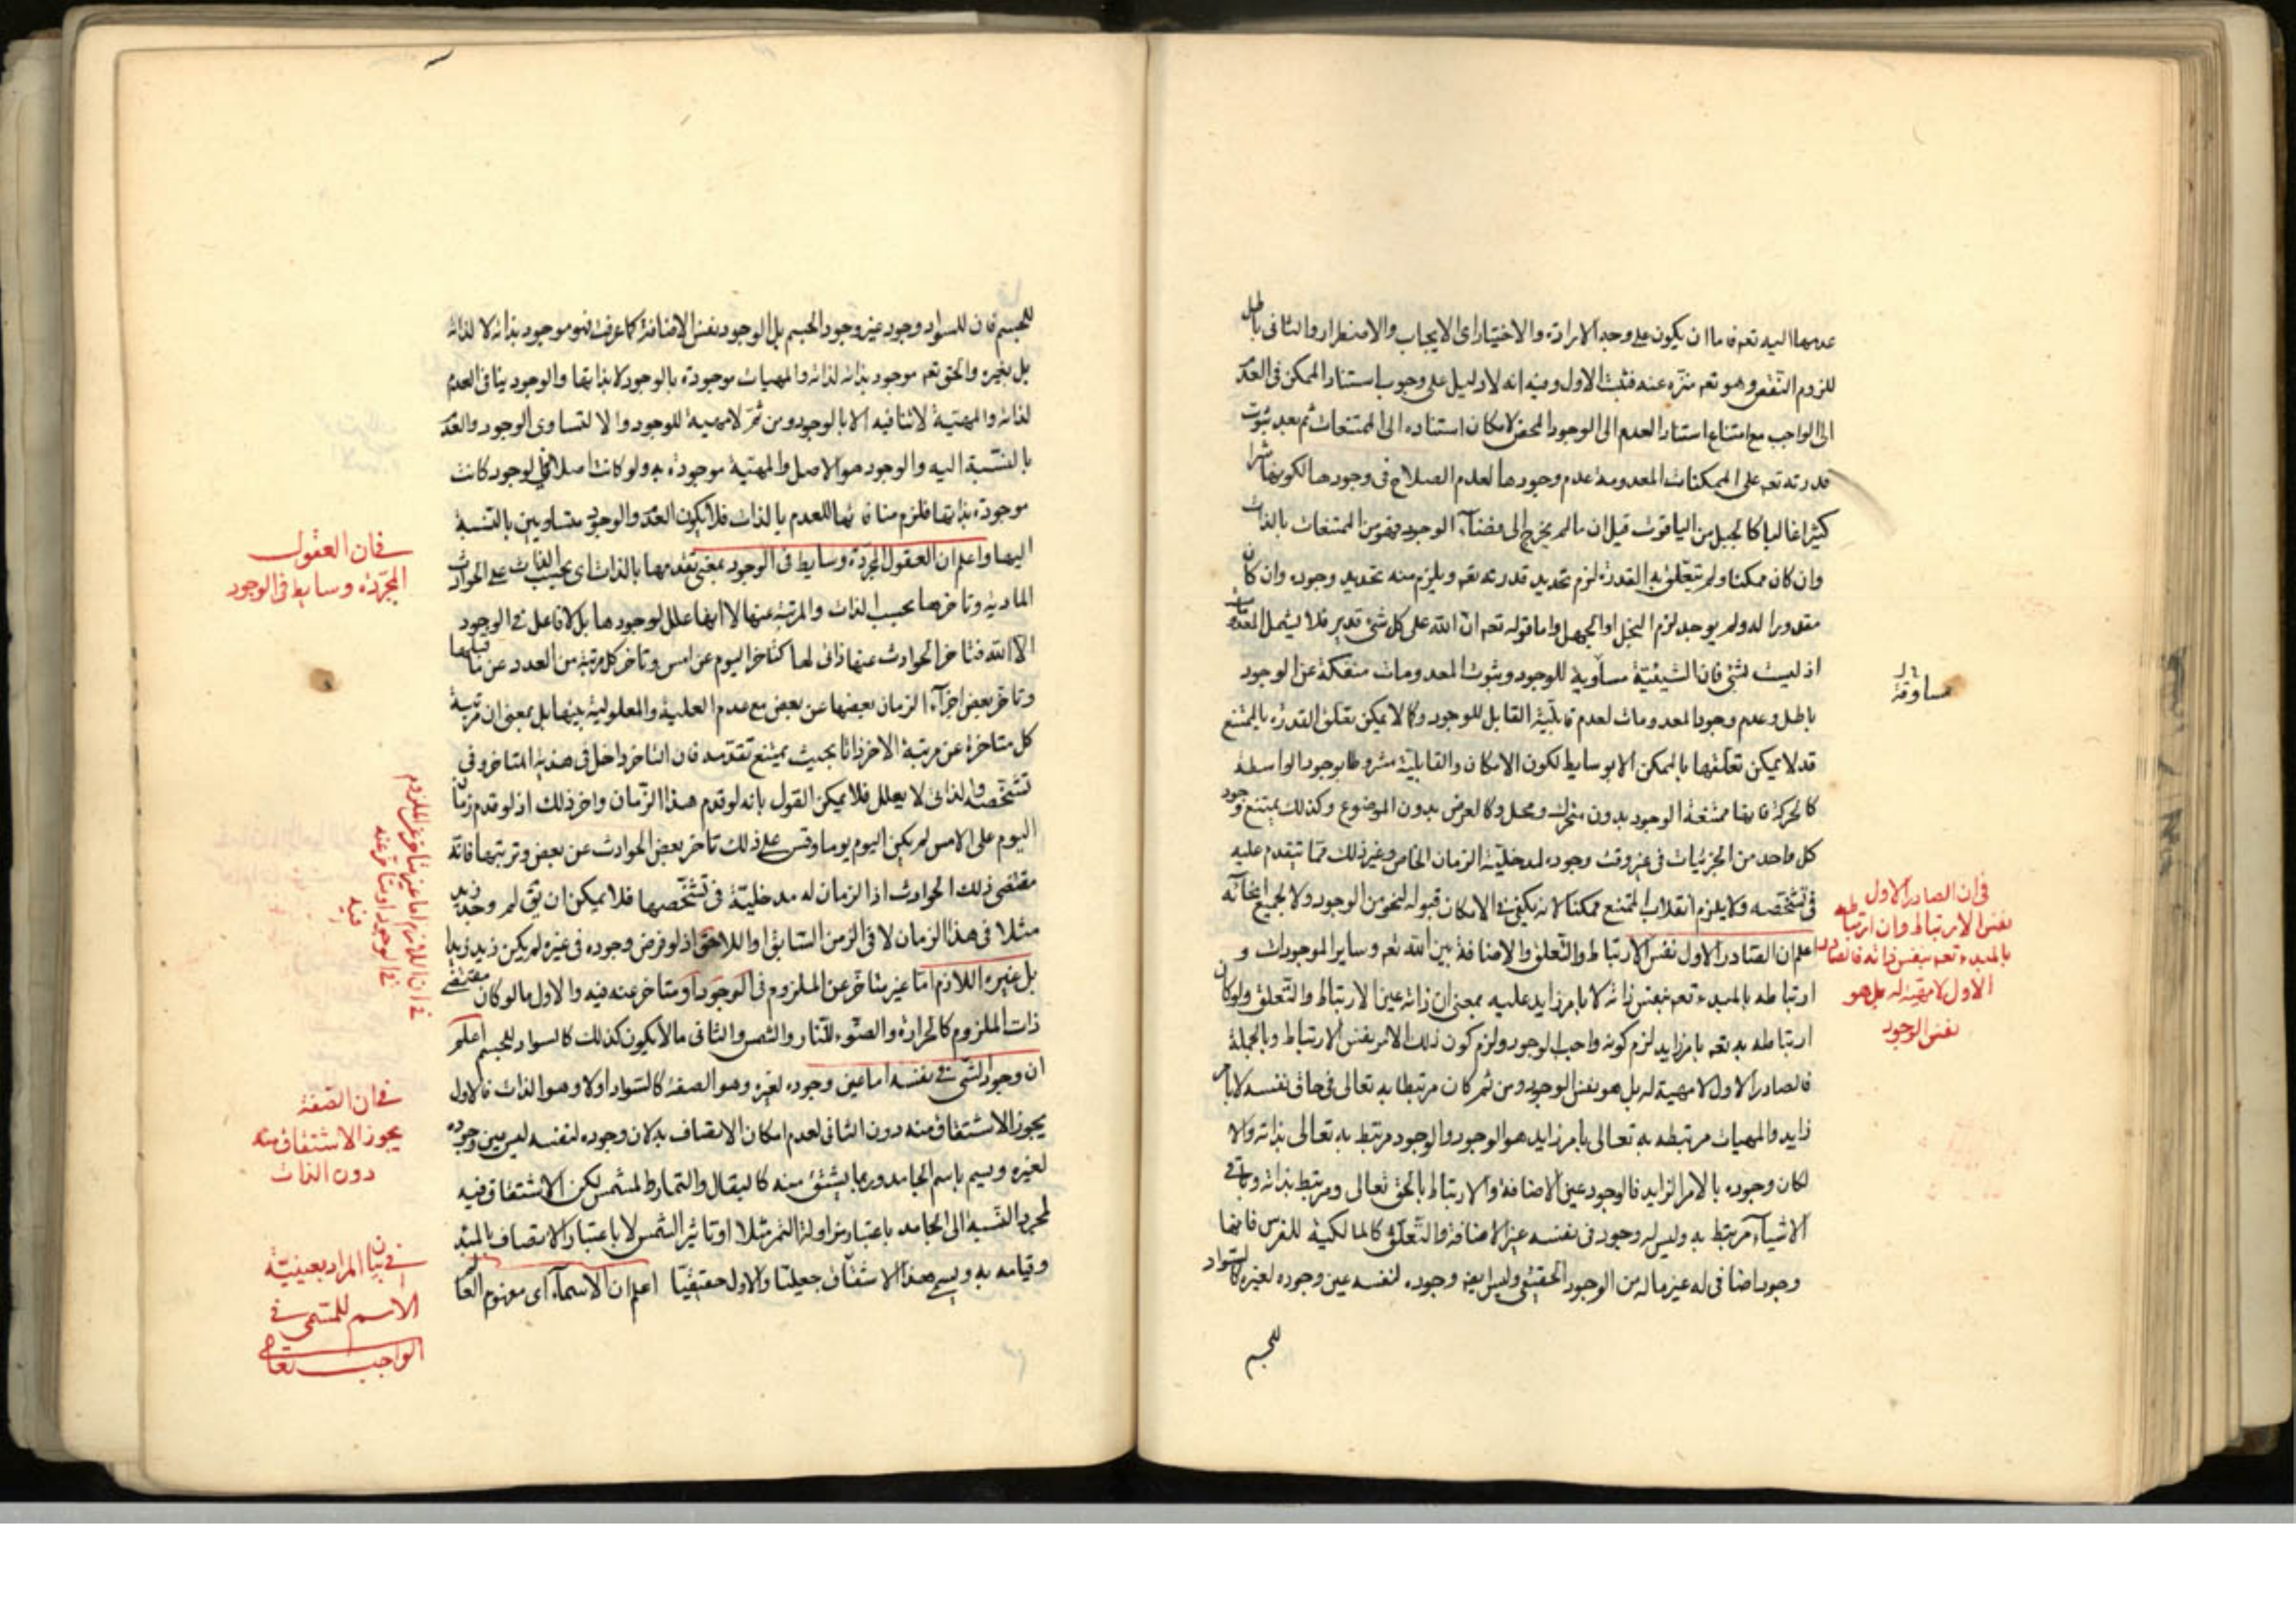 عدمهاا اليه تعم فاما ان يكون على وجه الارادة والاختيار او الايجاب والاضطرار والثانى باطل
للزوم النقص وهو تعم منزه عنه فثبت الاول وفيه انه لا دليل على وجوب استناد الممكن فى العد
الى الواجب مع امتناع استناد العدم الى الوجود المحض لامكان استناده الى الممتنعات ثم بعد ثبوت
قدرته تعم على الممكنات المعدومة عدم وجودها لعدم الصلاح فى وجودها لكونها شرا
كثيرا غالبا كالجبل من الياقوت قيل ان مالم يخرج الى فضاء الوجود فهو من الممتنعات بالذات
وان كان ممكنا ولم تتعلق به القدرة لزم تحديد قدرته تعم ويلزم منه تحديد وجوده وان كان
مقدورا له ولم يوجد لزم البخل او الجهل واما قوله تعم ان الله على كل شئ قدير فلا يشمل المعدومات
اذ ليست بشئ فان الشيئية مساوية للوجود وثبوت المعدومات منفكة عن الوجود
مساوقة
باطل وعدم وجود المعدومات لعدم قابلية القابل للوجود وكما لا يمكن تعلق القدرة بالممتنع
قد لا يمكن تعلقها بالممكن الا بوسايط لكون الامكان والقابلية مشروطا بوجود الواسطة
كالحركة فانها ممتنعة الوجود بدون متحرك ومحل وكالعرض بدون الموضوع وكذلك يمتنع وجود
كل واحد من الجزئيات فى غير وقت وجوده لمدخلية الزمان الخاص وغير ذلك مما يتقدم عليه
فى تشخصه ولا يلزم انقلاب الممتنع ممكنا لانه يكفى فى الامكان قبوله لنحو من الوجود ولا لجميع انحائه
اعلم ان الصادر الاول نفس الارتباط والتعلق والاضافة بين الله تعم وساير الموجودات و
ارتباطه بالمبدء تعم بنفس ذاته لا بامر زايد عليه بمعنى ان ذاته عين الارتباط والتعلق ولو كان
ارتباطه به تعم بامر زايد لزم كونه واجب الوجود ولزم كون ذلك الامر نفس الارتباط وبالجملة
فالصادر الاول لا مهية له بل هو نفس الوجود ومن ثم كان مرتبطا به تعالى فى حاق نفسه لا بامر
زايد والمهيات مرتبطة به تعالى بامر زايد هو الوجود والوجود مرتبط به تعالى بذاته والا
لكان وجوده بالامر الزايد فالوجود عين الاضافة والارتباط بالحق تعالى ومرتبط بذاته وباقى
الاشياء مرتبط به وليس له وجود فى نفسه غير الاضافة والتعلق كالمالكية للفرس فانها
وجود اضافى له غير ماله من الوجود الحقيقى وليس ايضا وجوده لنفسه عين وجوده لغيره كالسواد
للجسم
فى ان الصادر الاول
نفس الارتباط وان ارتباطه
بالمبدء تعم بنفس ذاته فالصادر
الاول لا مهية له بل هو
نفس الوجود
للجسم فان للسواد وجود غير وجود الجسم بل الوجود نفس الاضافة كما عرفت فهو موجود بذاته لا لذاته
بل بغيره والحق تعم موجود بذاته لذاته والمهيات موجودة بالوجود لا بذاتها والوجود ينافى العدم
لذاته والمهية لا تنافيه الا بالوجود ومن ثم لا مهية للوجود والا لتساوى الوجود والعد
بالنسبة اليه والوجود هو الاصل والمهية موجودة به ولو كانت اصلا فى الوجود كانت
موجودة بذاتها فلزم منافاتها للعدم بالذات فلا يكون العد والوجود متساويين بالنسبة
اليها واعلم ان العقول المجردة وسايط فى الوجود بمعنى تقدمها بالذات اى بحسب الذات على الحوادث
المادية وتاخرها بحسب الذات والمرتبة عنها لا انها علل لوجودها بل لا فاعل فى الوجود
الا الله فتاخر الحوادث عنها ذاتى لها كتاخر اليوم عن امس وتاخر كل مرتبة من العدد عن ما قبلها
وتاخر بعض اجزاء الزمان بعضها عن بعض مع عدم العلية والمعلولية بينها بل بمعنى ان مرتبة
كل متاخرة عن مرتبة الاخر ذاتا بحيث يمتنع تقدمه فان التاخر داخل فى هذية المتاخر وفى
تشخصه والذاتى لا يعلل فلا يمكن القول بانه لو قدم هذا الزمان واخر ذلك اذ لو قدم زمان
اليوم على الامس لم يكن اليوم يوما وقس على ذلك تاخر بعض الحوادث عن بعض وترتبها فانه
مقتضى ذلك الحوادث اذ الزمان له مدخلية فى تشخصها فلا يمكن ان يق لم وجد زيد
مثلا فى هذا الزمان لا فى الزمن السابق او اللاحق اذ لو فرض وجوده فى غيره لم يكن زيد زيدا
بل غيره اللازم اما غير متاخر عن الملزوم فى الوجود او متاخر عنه فيه والاول ما لو كان مقتضى
ذات الملزوم كالحرارة والضوء للنار والشمس والثانى ما لا يكون كذلك كالسواد للجسم اعلم
ان وجود الشئ فى نفسه اما عين وجوده لغيره وهو الصفة كالسواد اولا وهو الذات فالاول
يجوز الاشتقاق منه دون الثانى لعدم امكان الاتصاف به لان وجوده لنفسه ليس عين وجوده
لغيره ويسم باسم الجامد وربما يشتق منه كالبقال والتمار والمشمس لكن الاشتقاق فيه
لمجرد النسبة الى الجامد باعتبار مزاولة التمر مثلا او تاثير الشمس لا باعتبار الاتصاف بالمبدء
وقيامه به ويسمى هذا الاشتقاق جعليا والاول حقيقيا اعلم ان الاسماء اى مفهوم العا
فى ان العقول
المجردة وسايط فى الوجود
فى ان اللازم اما غير متاخر عن الملزوم
فى الوجود او متاخر عنه
فيه
فى ان الصفة
يجوز الاشتقاق منه
دون الذات
فى بيان المراد بعينية
الاسم للمسمى فى
الواجب تعالى